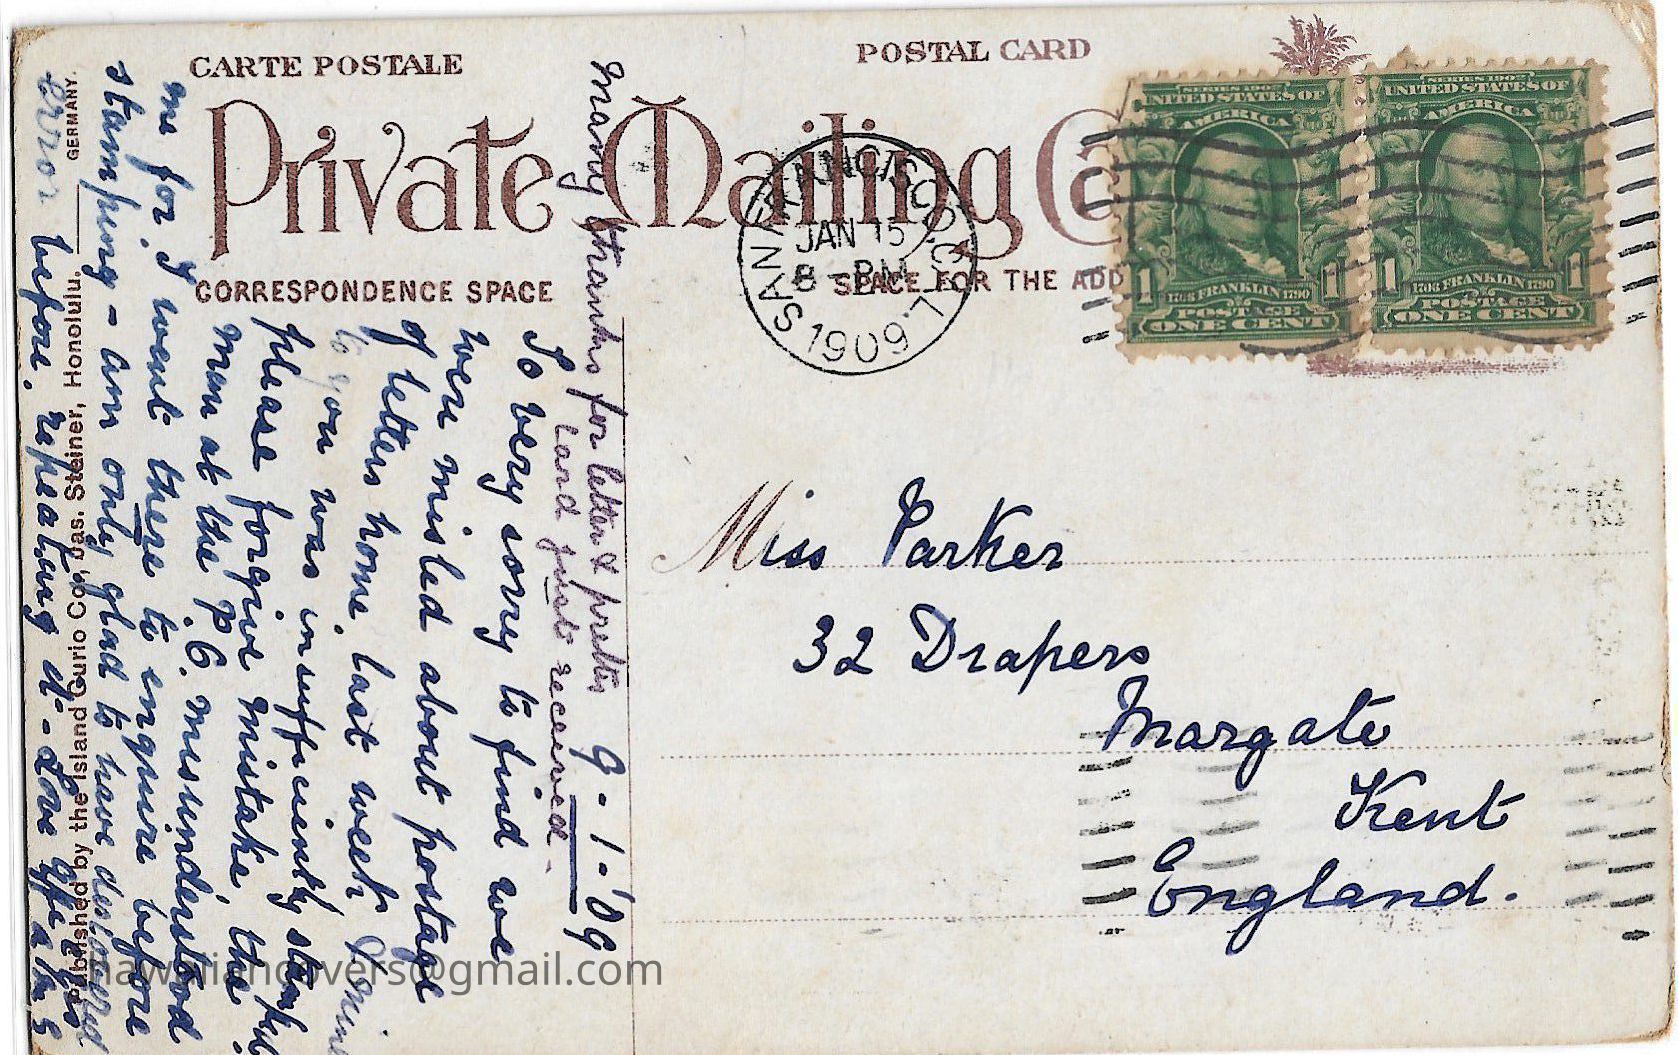 CARTE POSTALE
POSTAL CARD
Private Mailing Ca
CORRESPONDENCE SPACE
SPACE FOR THE ADD
SAN FRANCISCO, CAL.
JAN 15
8 - PM
1909
SERIES 1902
UNITED STATES OF
AMERICA
1706 FRANKLIN 1790
POSTAGE
1 ONE CENT 1
SERIES 1902
UNITED STATES OF
AMERICA
1706 FRANKLIN 1790
POSTAGE
1 ONE CENT 1
Miss Parker
32 Drapers
Margate
Kent
England.
Many thanks for letter & pretty
card just received.
9-1-'09
So very sorry to find we
were misled about postage
of letters home. last week
to you was insufficiently stamped
please forgive mistake, the
man at the P.C. misunderstood
me for I went there to enquire before
stamping - am only glad to have discovered
error before repeating it - Love
Published by the Island Curio Co., Jas. Steiner, Honolulu.
GERMANY.
hawaiiancovers@gmail.com